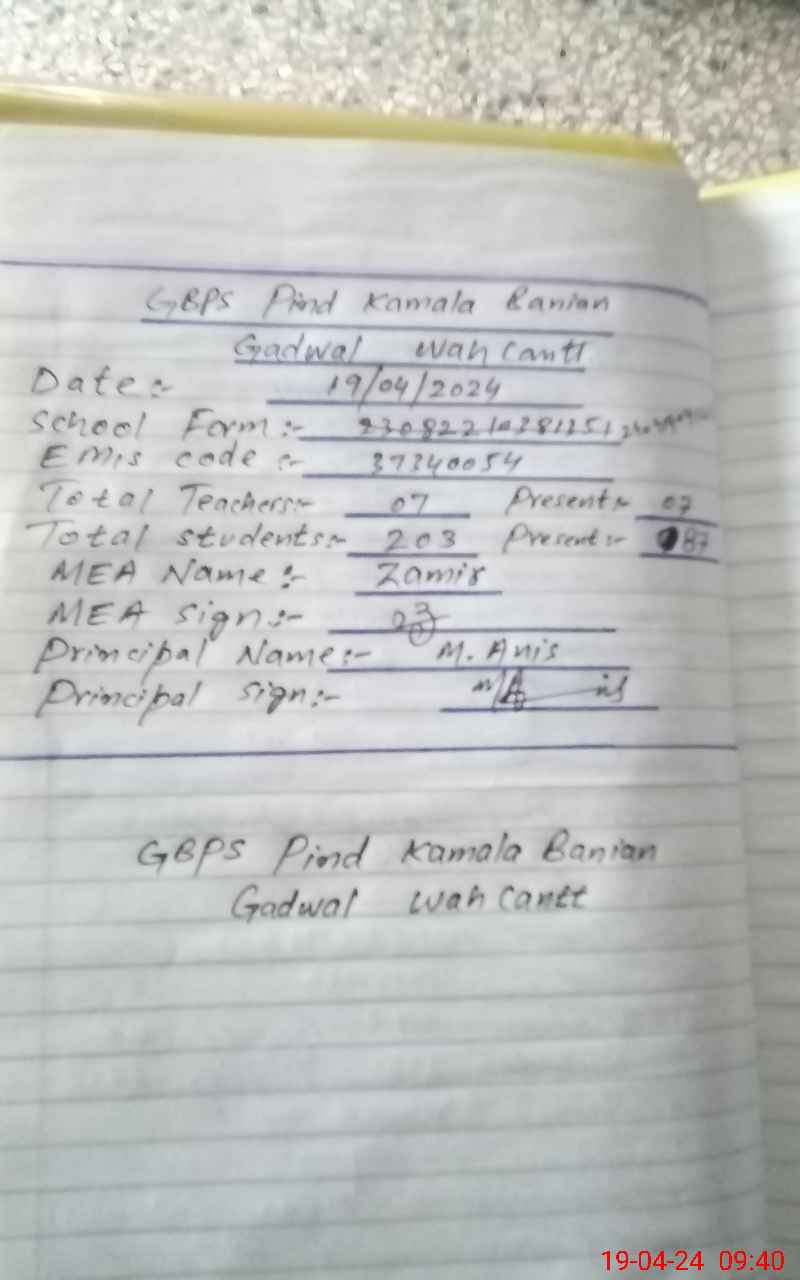 GBPS Pind Kamala Banian
Gadwal Wah Cantt
Date:- 19/04/2024
School Form:-
EMIS code:- 37340054
Total Teachers:- 07 Present:- 07
Total students:- 203 Present:- 87
MEA Name:- Zamir
MEA Sign:-
Principal Name:- M. Anis
Principal Sign:-
GBPS Pind Kamala Banian
Gadwal Wah Cantt
19-04-24 09:40